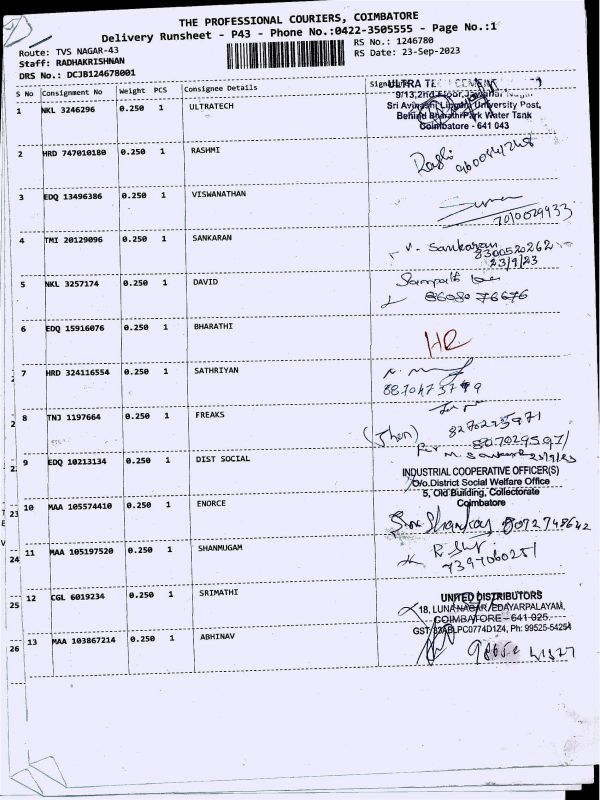 THE PROFESSIONAL COURIERS, COIMBATORE
Delivery Runsheet - P43 - Phone No.:0422-3505555 - Page No.:1
Route: TVS NAGAR-43
RS No.: 1246780
Staff: RADHAKRISHNAN
RS Date: 23-Sep-2023
DRS No.: DCJB124678001
S No Consignment No Weight PCS Consignee Details
1 NKL 3246296 0.250 1 ULTRATECH
9/13, 2nd Floor, Jawahar Nagar
Sri Avinashi Lingam University Post,
Behind Bharathi Park Water Tank
Coimbatore - 641 043
2 HRD 747010180 0.250 1 RASHMI
3 EDQ 13496386 0.250 1 VISWANATHAN
7010029933
4 TMI 20129096 0.250 1 SANKARAN
V. Sankaran
8300520262
23/9/23
5 NKL 3257174 0.250 1 DAVID
Sampath
86080 76676
6 EDQ 15916076 0.250 1 BHARATHI
HR
7 HRD 324116554 0.250 1 SATHRIYAN
8 TNJ 1197664 0.250 1 FREAKS
8270295971
9 EDQ 10213134 0.250 1 DIST SOCIAL
INDUSTRIAL COOPERATIVE OFFICER(S)
O/o.District Social Welfare Office
5, Old Building, Collectorate
Coimbatore
23 10 MAA 105574410 0.250 1 ENORCE
24 11 MAA 105197520 0.250 1 SHANMUGAM
7397060251
25 12 CGL 6019234 0.250 1 SRIMATHI
UNITED DISTRIBUTORS
18, LUNA NAGAR, EDAYARPALAYAM,
COIMBATORE - 641 025.
GST: 33ABLPC0774D1Z4, Ph: 99525-54254
26 13 MAA 103867214 0.250 1 ABHINAV